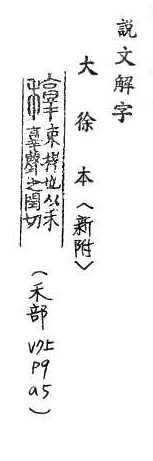 説文解字
大徐本〈新附〉
束稈也从禾
𦎫聲之閏切
(禾部 V7上 P9 a5)